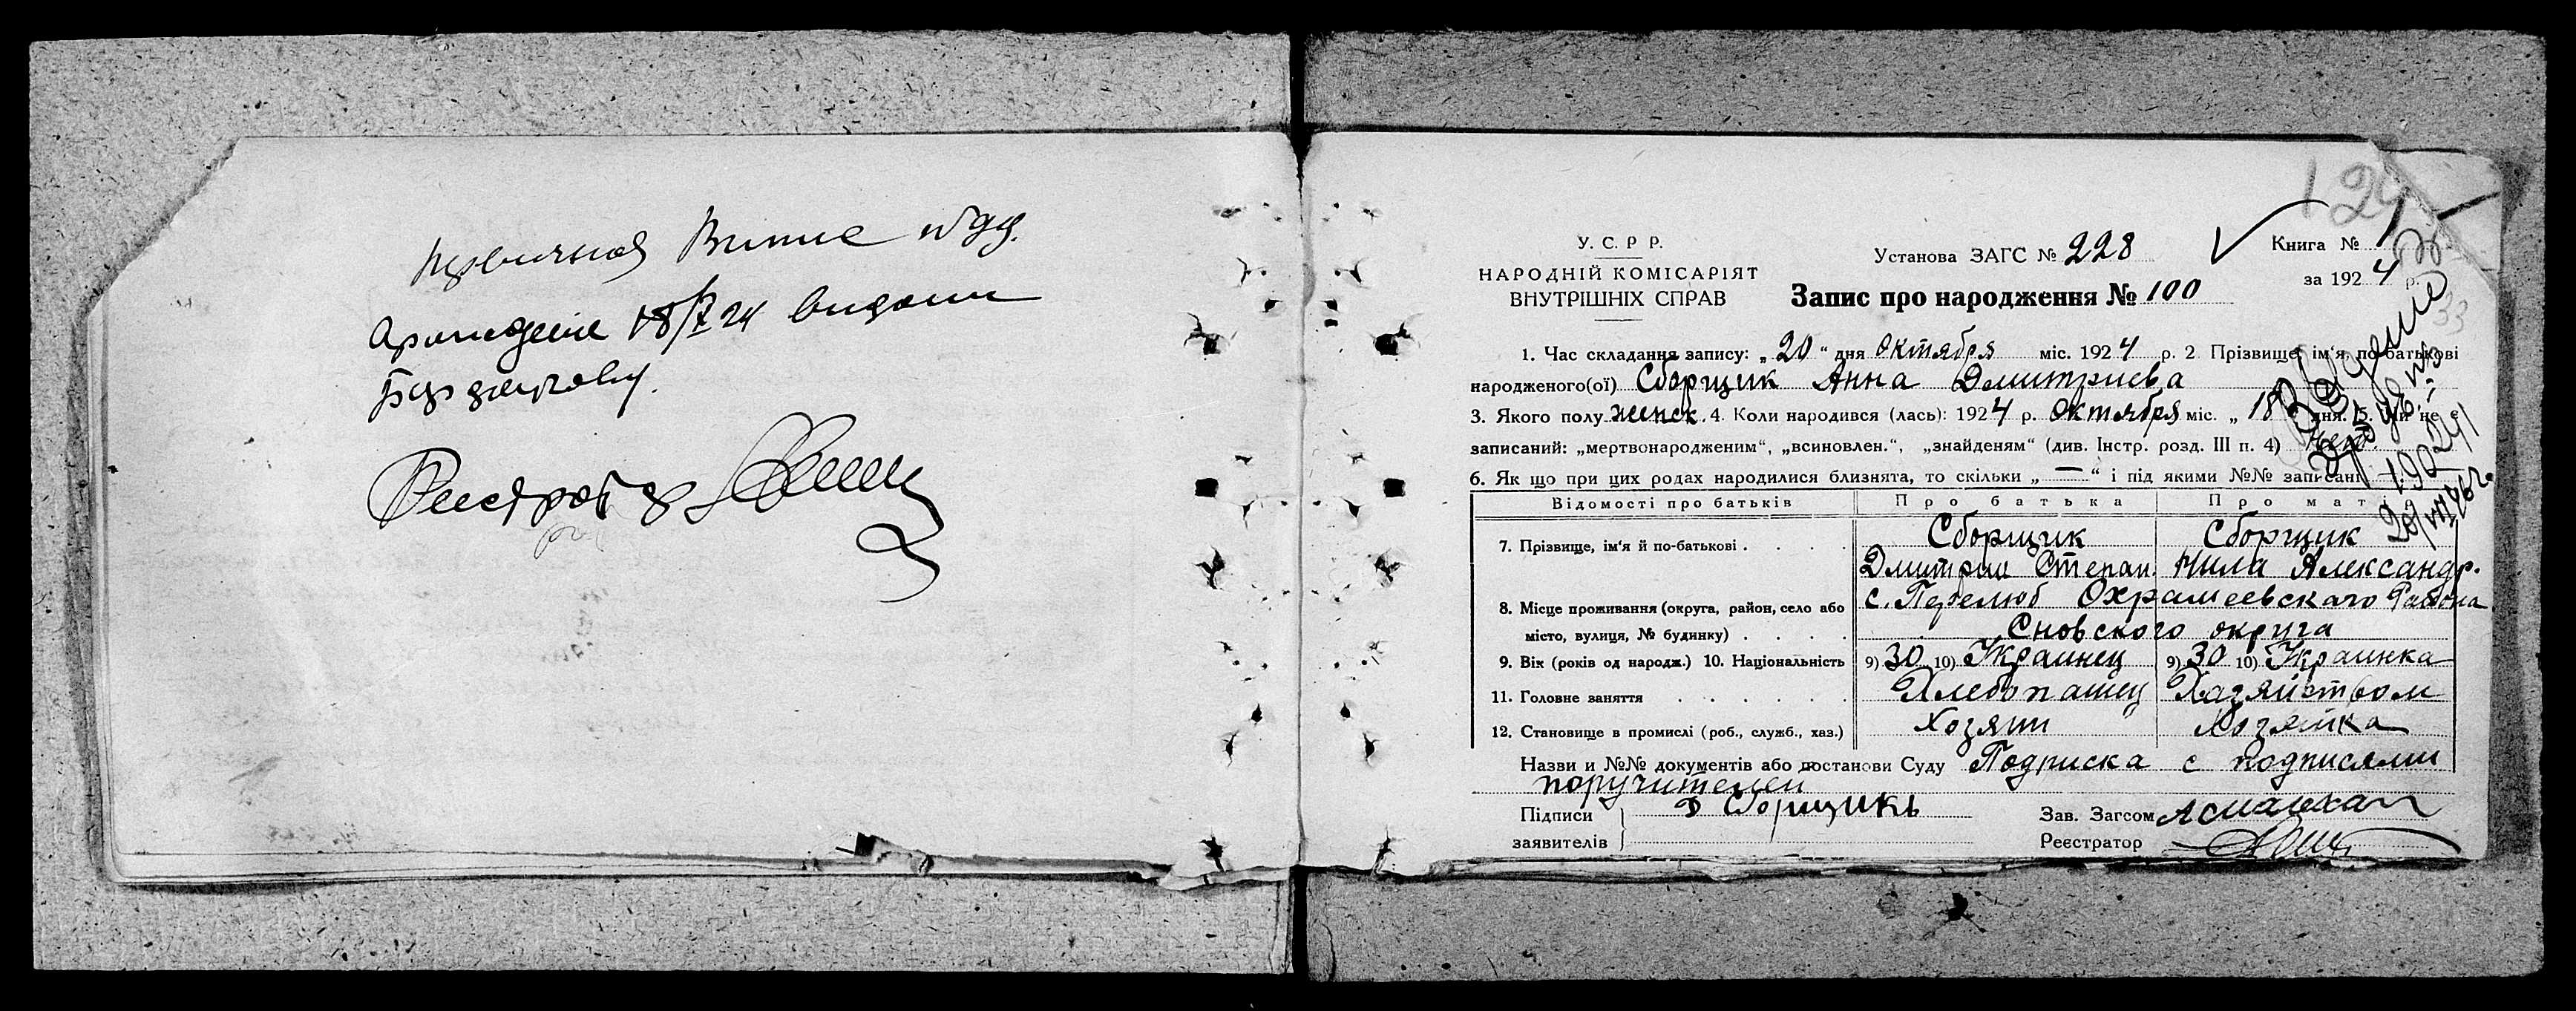 Первичная
18/X 24 видана
Реєстратор
У. С. Р Р.
НАРОДНІЙ КОМІСАРІЯТ
ВНУТРІШНІХ СПРАВ
Установа ЗАГС № 228
Запис про народження № 100
Книга № 1
за 1924 р.
1. Час складання запису: „20“ дня Октября міс. 1924 р. 2 Прізвище, ім'я, по-батькові
народженого(ої) Сборщик Анна Дмитриева
3. Якого полу женск. 4. Коли народився (лась): 1924 р. Октября міс. „18 дня. 5. Чи не є
записаний: „мертвонародженим“, „всиновлен.“, „знайденям“ (див. Інстр. розд. III п. 4)
6. Як що при цих родах народилися близнята, то скільки „—“ і під якими №№ записані
Відомості про батьків Про батька Про мат
7. Прізвище, ім'я й по-батькові . . . . Сборщик Сборщик
Дмитрий Степан. Нила Александр.
8. Місце проживання (округа, район, село або с. Перелюб Охрамеевскаго Района
місто, вулиця, № будинку) . . . . Сновского округа
9. Вік (років од народж.) 10. Національність 9) 30 10) Украинец 9) 30 10) Украинка
11. Головне заняття . . . . . . Хлебопашец Хазяйством
12. Становище в промислі (роб., служб., хаз.) Хозяин Хозяйка
Назви и №№ документів або постанови Суду Подписка с подписями
поручителей
Підписи Д Сборщикъ
заявителів
Зав. Загсом
Реєстратор